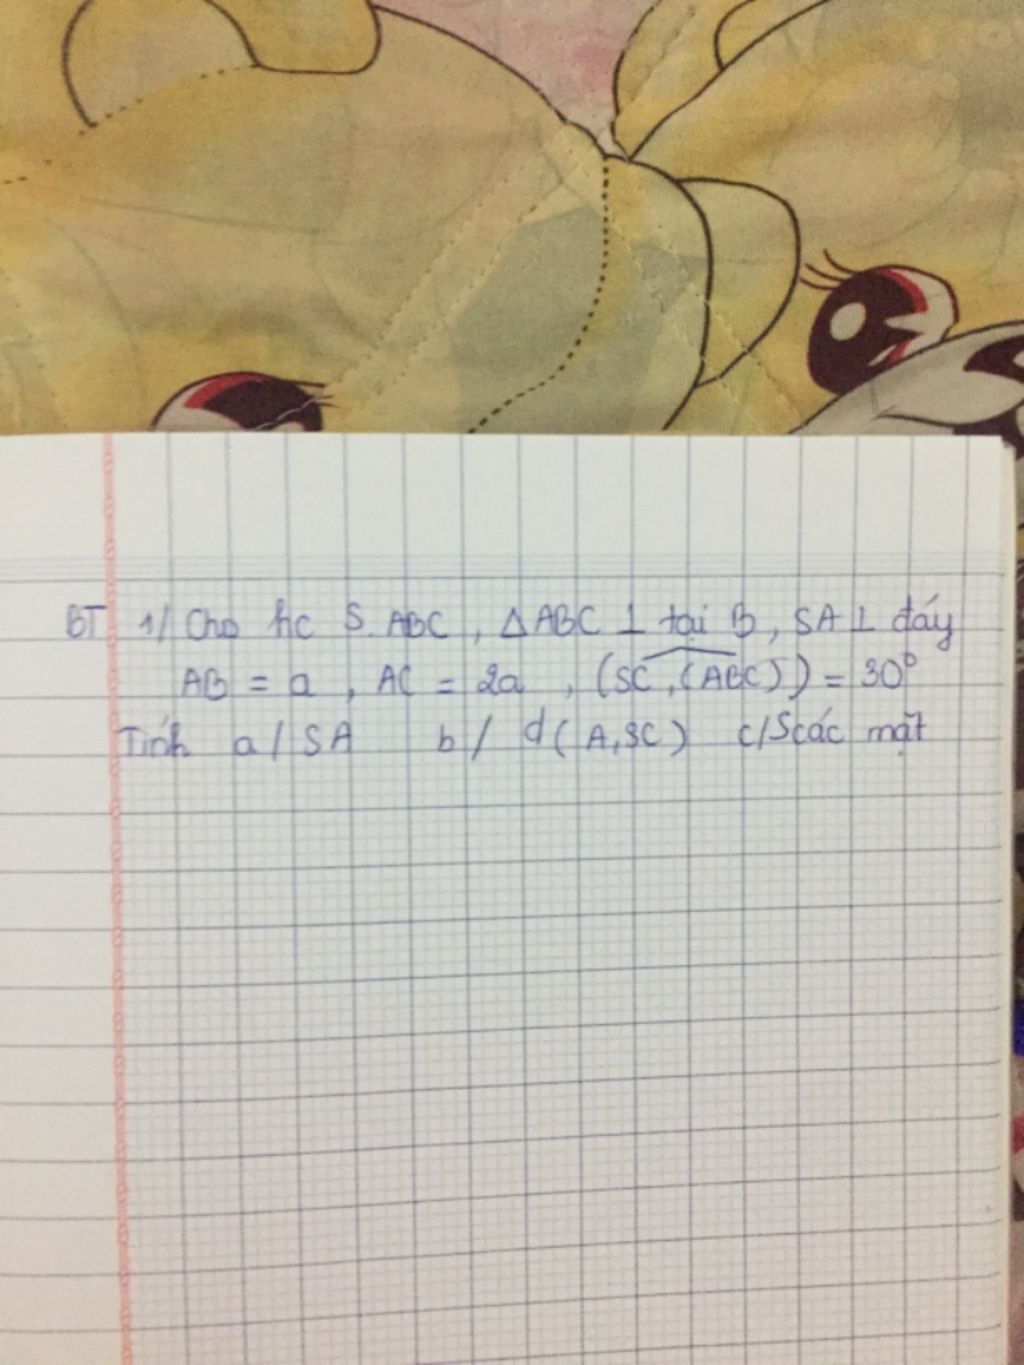 BT 1/ Cho hc S.ABC, ΔABC ⊥ tại B, SA ⊥ đáy
AB = a, AC = 2a, (SC,(ABC)) = 30°
Tính a/ SA b/ d(A,SC) c/ S các mặt